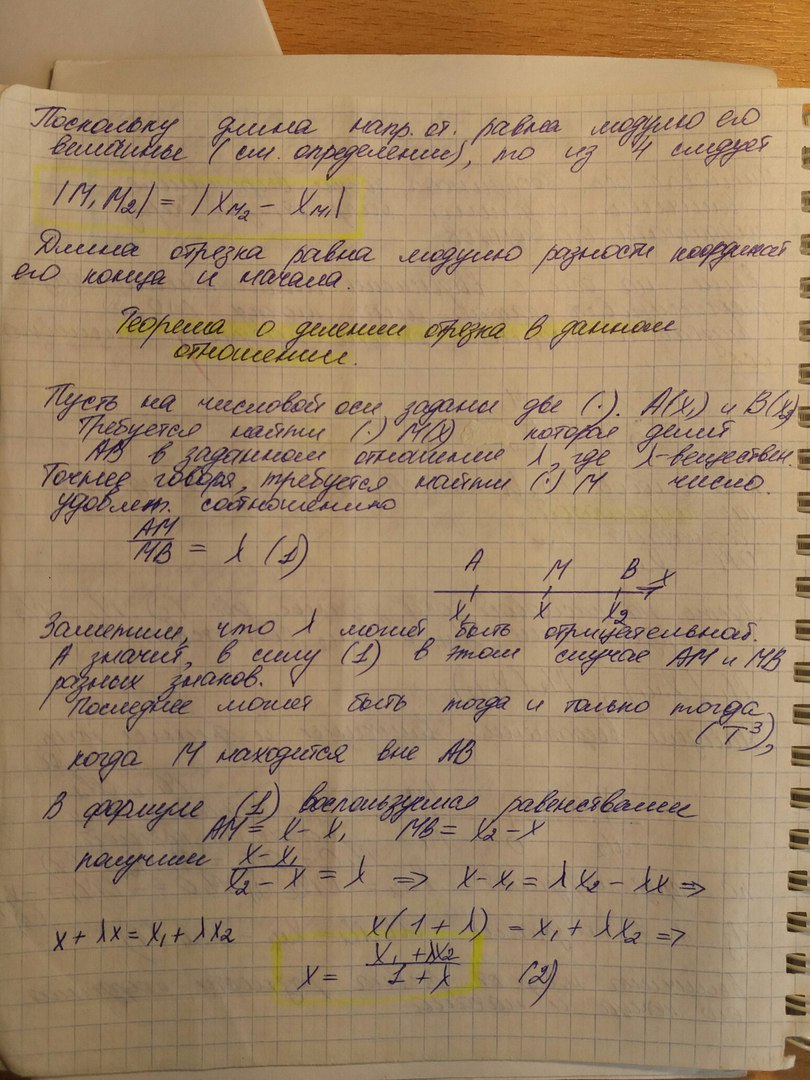 Поскольку длина напр. от. равна модулю его
величины (см. определение), то из 4 следует
|M₁M₂| = |X_M₂ − X_M₁|
Длина отрезка равна модулю разности координат
его конца и начала.
Теорема о делении отрезка в данном
отношении.
Пусть на числовой оси заданы две (·). A(X₁) и B(X₂)
Требуется найти (·) M(X) которая делит
AB в заданном отношение λ, где λ-веществен.
Точнее говоря, требуется найти (·) M число.
удовлет. соотношению
AM/MB = λ (1)
A M B X
X₁ X X₂
Заметим, что λ может быть отрицательной.
А значит, в силу (1) в этом случае AM и MB
разных знаков.
Последнее может быть тогда и только тогда
(T³),
когда M находится вне AB
В формуле (1) воспользуемся равенствами
AM = X − X₁ MB = X₂ − X
получим (X − X₁)/(X₂ − X) = λ => X − X₁ = λX₂ − λX =>
X + λX = X₁ + λX₂ X(1 + λ) = X₁ + λX₂ =>
X = (X₁ + λX₂)/(1 + λ) (2)